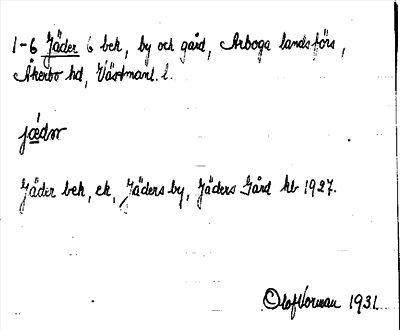 1-6 Jäder 6 bek, by och gård, Arboga landsförs,
Åkerbo hd, Västmanl. l.
jǽdər
Jäder bek, ek, Jäders by, Jäders Gård kb 1927.
Olof Norman 1931.